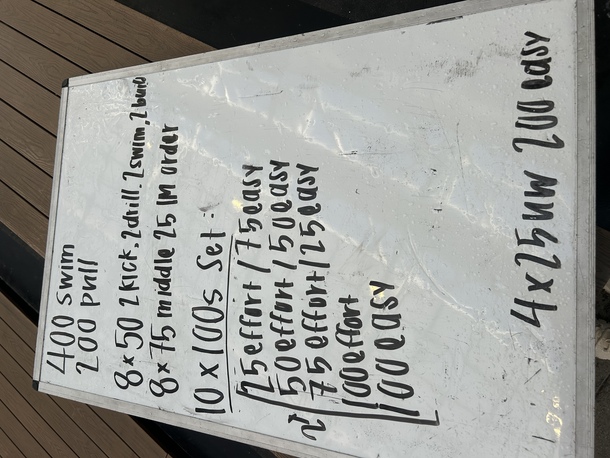 400 swim
200 pull
8x50 2kick, 2drill, 2swim, 2 build
8x75 middle 25 IM order
10x100s Set:
2x
25effort/75easy
50effort/50easy
75effort/25easy
100effort
100easy
4x25uw 200 easy